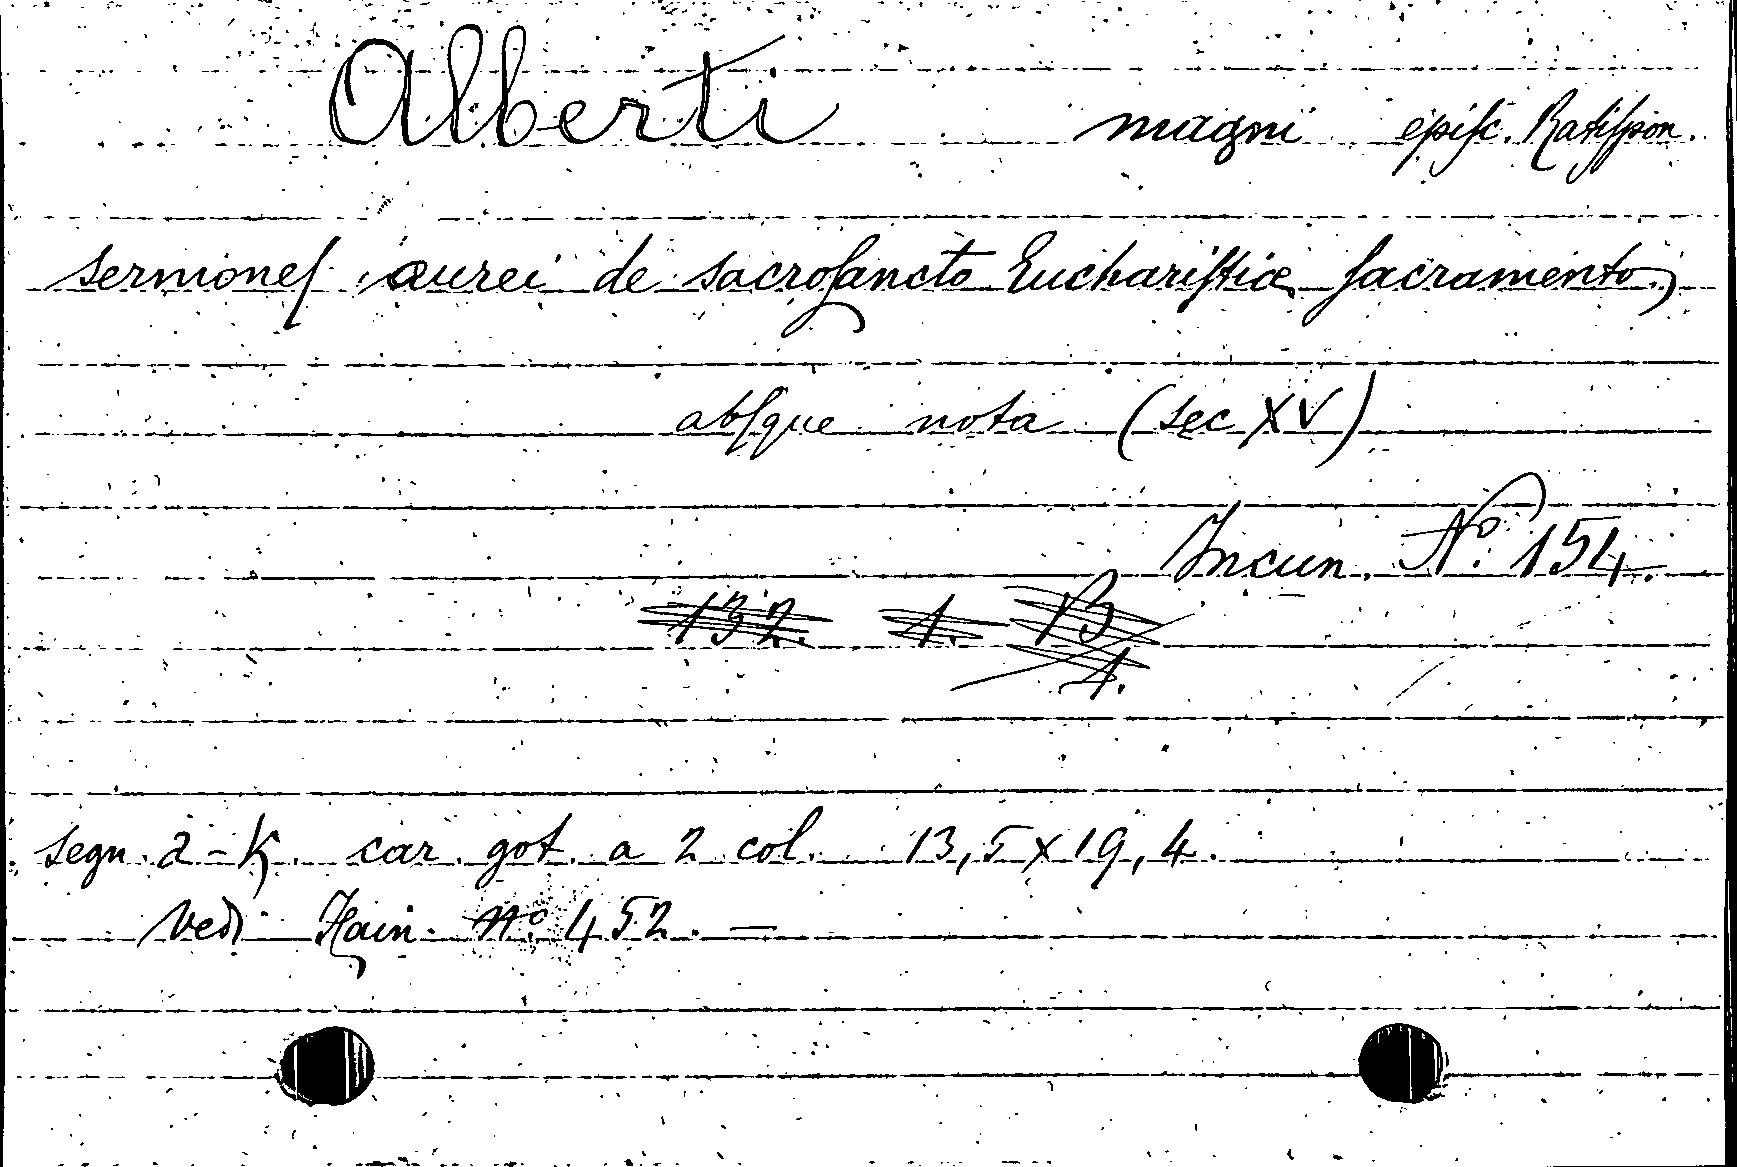 Alberti magni epiſc. Ratiſpon.
sermoneſ aurei de sacroſancto Euchariſtiæ ſacramento,
abſque nota (sec XV)
Incun. Nº 154.
132. 1. B
1.
segn. a-k car. got. a 2 col. 13,5 x 19,4.
Vedi Hain. nº 452. —